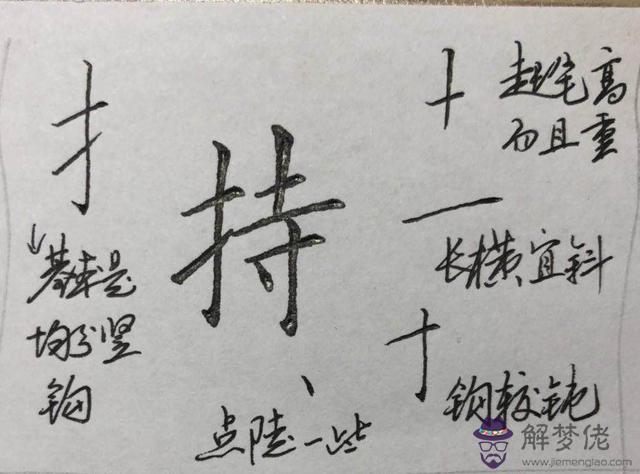 起笔高
而且重
持
长横宜斜
基本是
均分竖
钩
钩较钝
点陡一些
解梦佬
www.jiemenglao.com